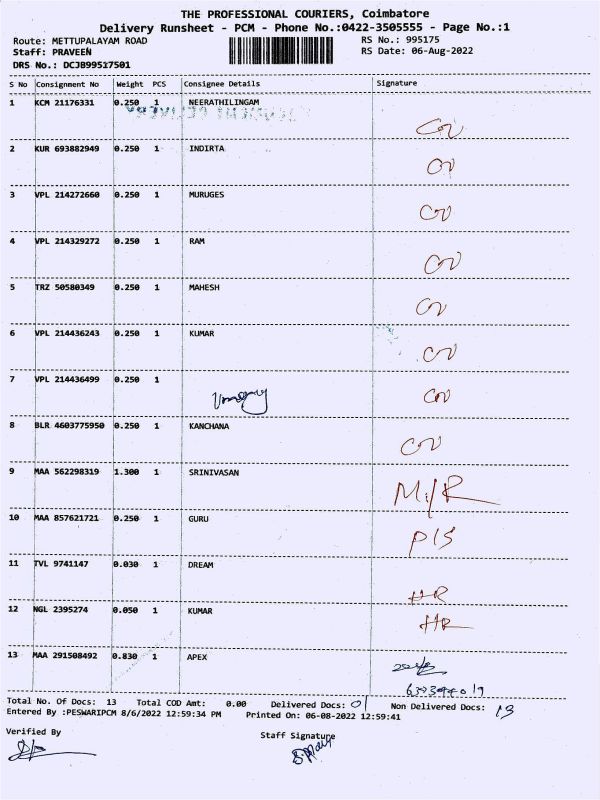 THE PROFESSIONAL COURIERS, Coimbatore
Delivery Runsheet - PCM - Phone No.:0422-3505555 - Page No.:1
Route: METTUPALAYAM ROAD RS No.: 995175
Staff: PRAVEEN RS Date: 06-Aug-2022
DRS No.: DCJB99517501
S No Consignment No Weight PCS Consignee Details Signature
1 KCM 21176331 0.250 1 NEERATHILINGAM
2 KUR 693882949 0.250 1 INDIRTA
3 VPL 214272660 0.250 1 MURUGES
4 VPL 214329272 0.250 1 RAM
5 TRZ 50580349 0.250 1 MAHESH
6 VPL 214436243 0.250 1 KUMAR
7 VPL 214436499 0.250 1
8 BLR 4603775950 0.250 1 KANCHANA
9 MAA 562298319 1.300 1 SRINIVASAN M/R
10 MAA 857621721 0.250 1 GURU P/S
11 TVL 9741147 0.030 1 DREAM HR
12 NGL 2395274 0.050 1 KUMAR HR
13 MAA 291508492 0.830 1 APEX
Total No. Of Docs: 13 Total COD Amt: 0.00 Delivered Docs: 01 Non Delivered Docs: 13
Entered By :PESWARIPCM 8/6/2022 12:59:34 PM Printed On: 06-08-2022 12:59:41
Verified By Staff Signature